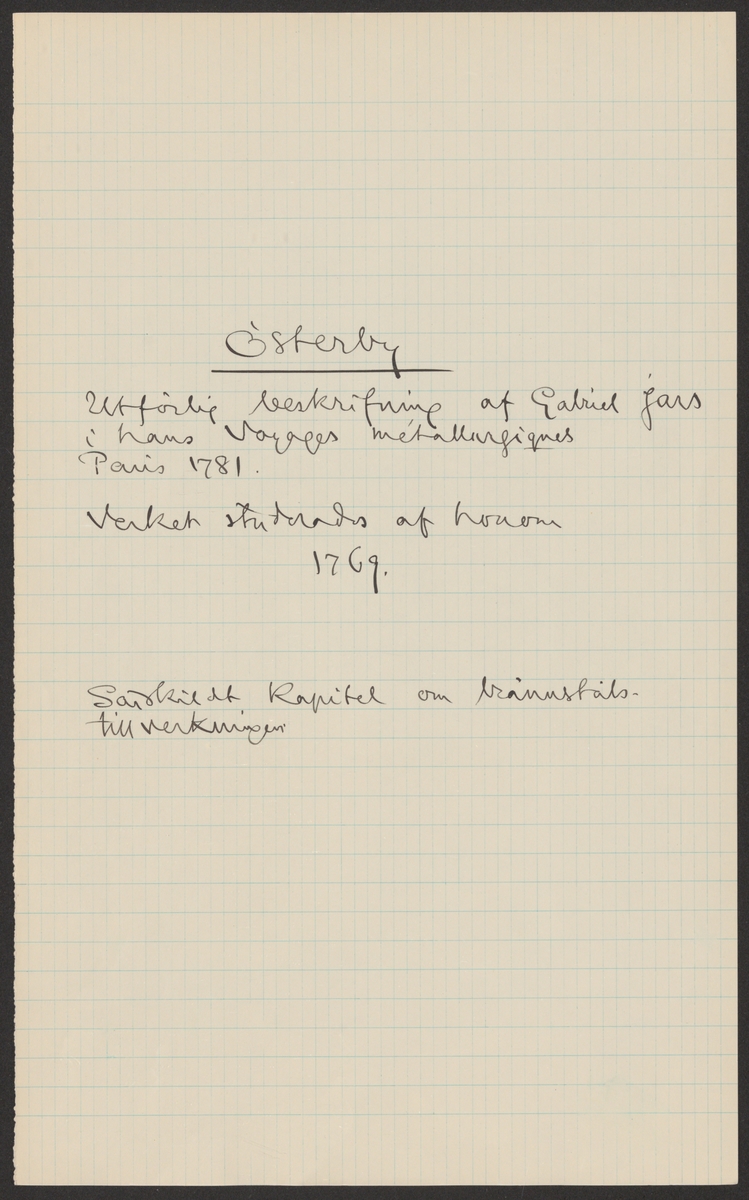 Österby
Utförlig beskrifning af Gabriel Jars
i hans Voyages métallurgiques
Paris 1781.
Verket studerades af honom
1769.
Särskildt kapitel om brännståls-
tillverkningen